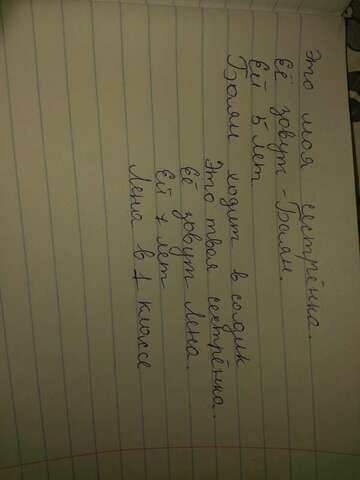 Это моя сестрёнка.
Её зовут - Баян.
Ей 5 лет
Баян ходит в содик
Это твоя сестрёнка.
Её зовут Лена.
Ей 7 лет
Лена в 1 классе